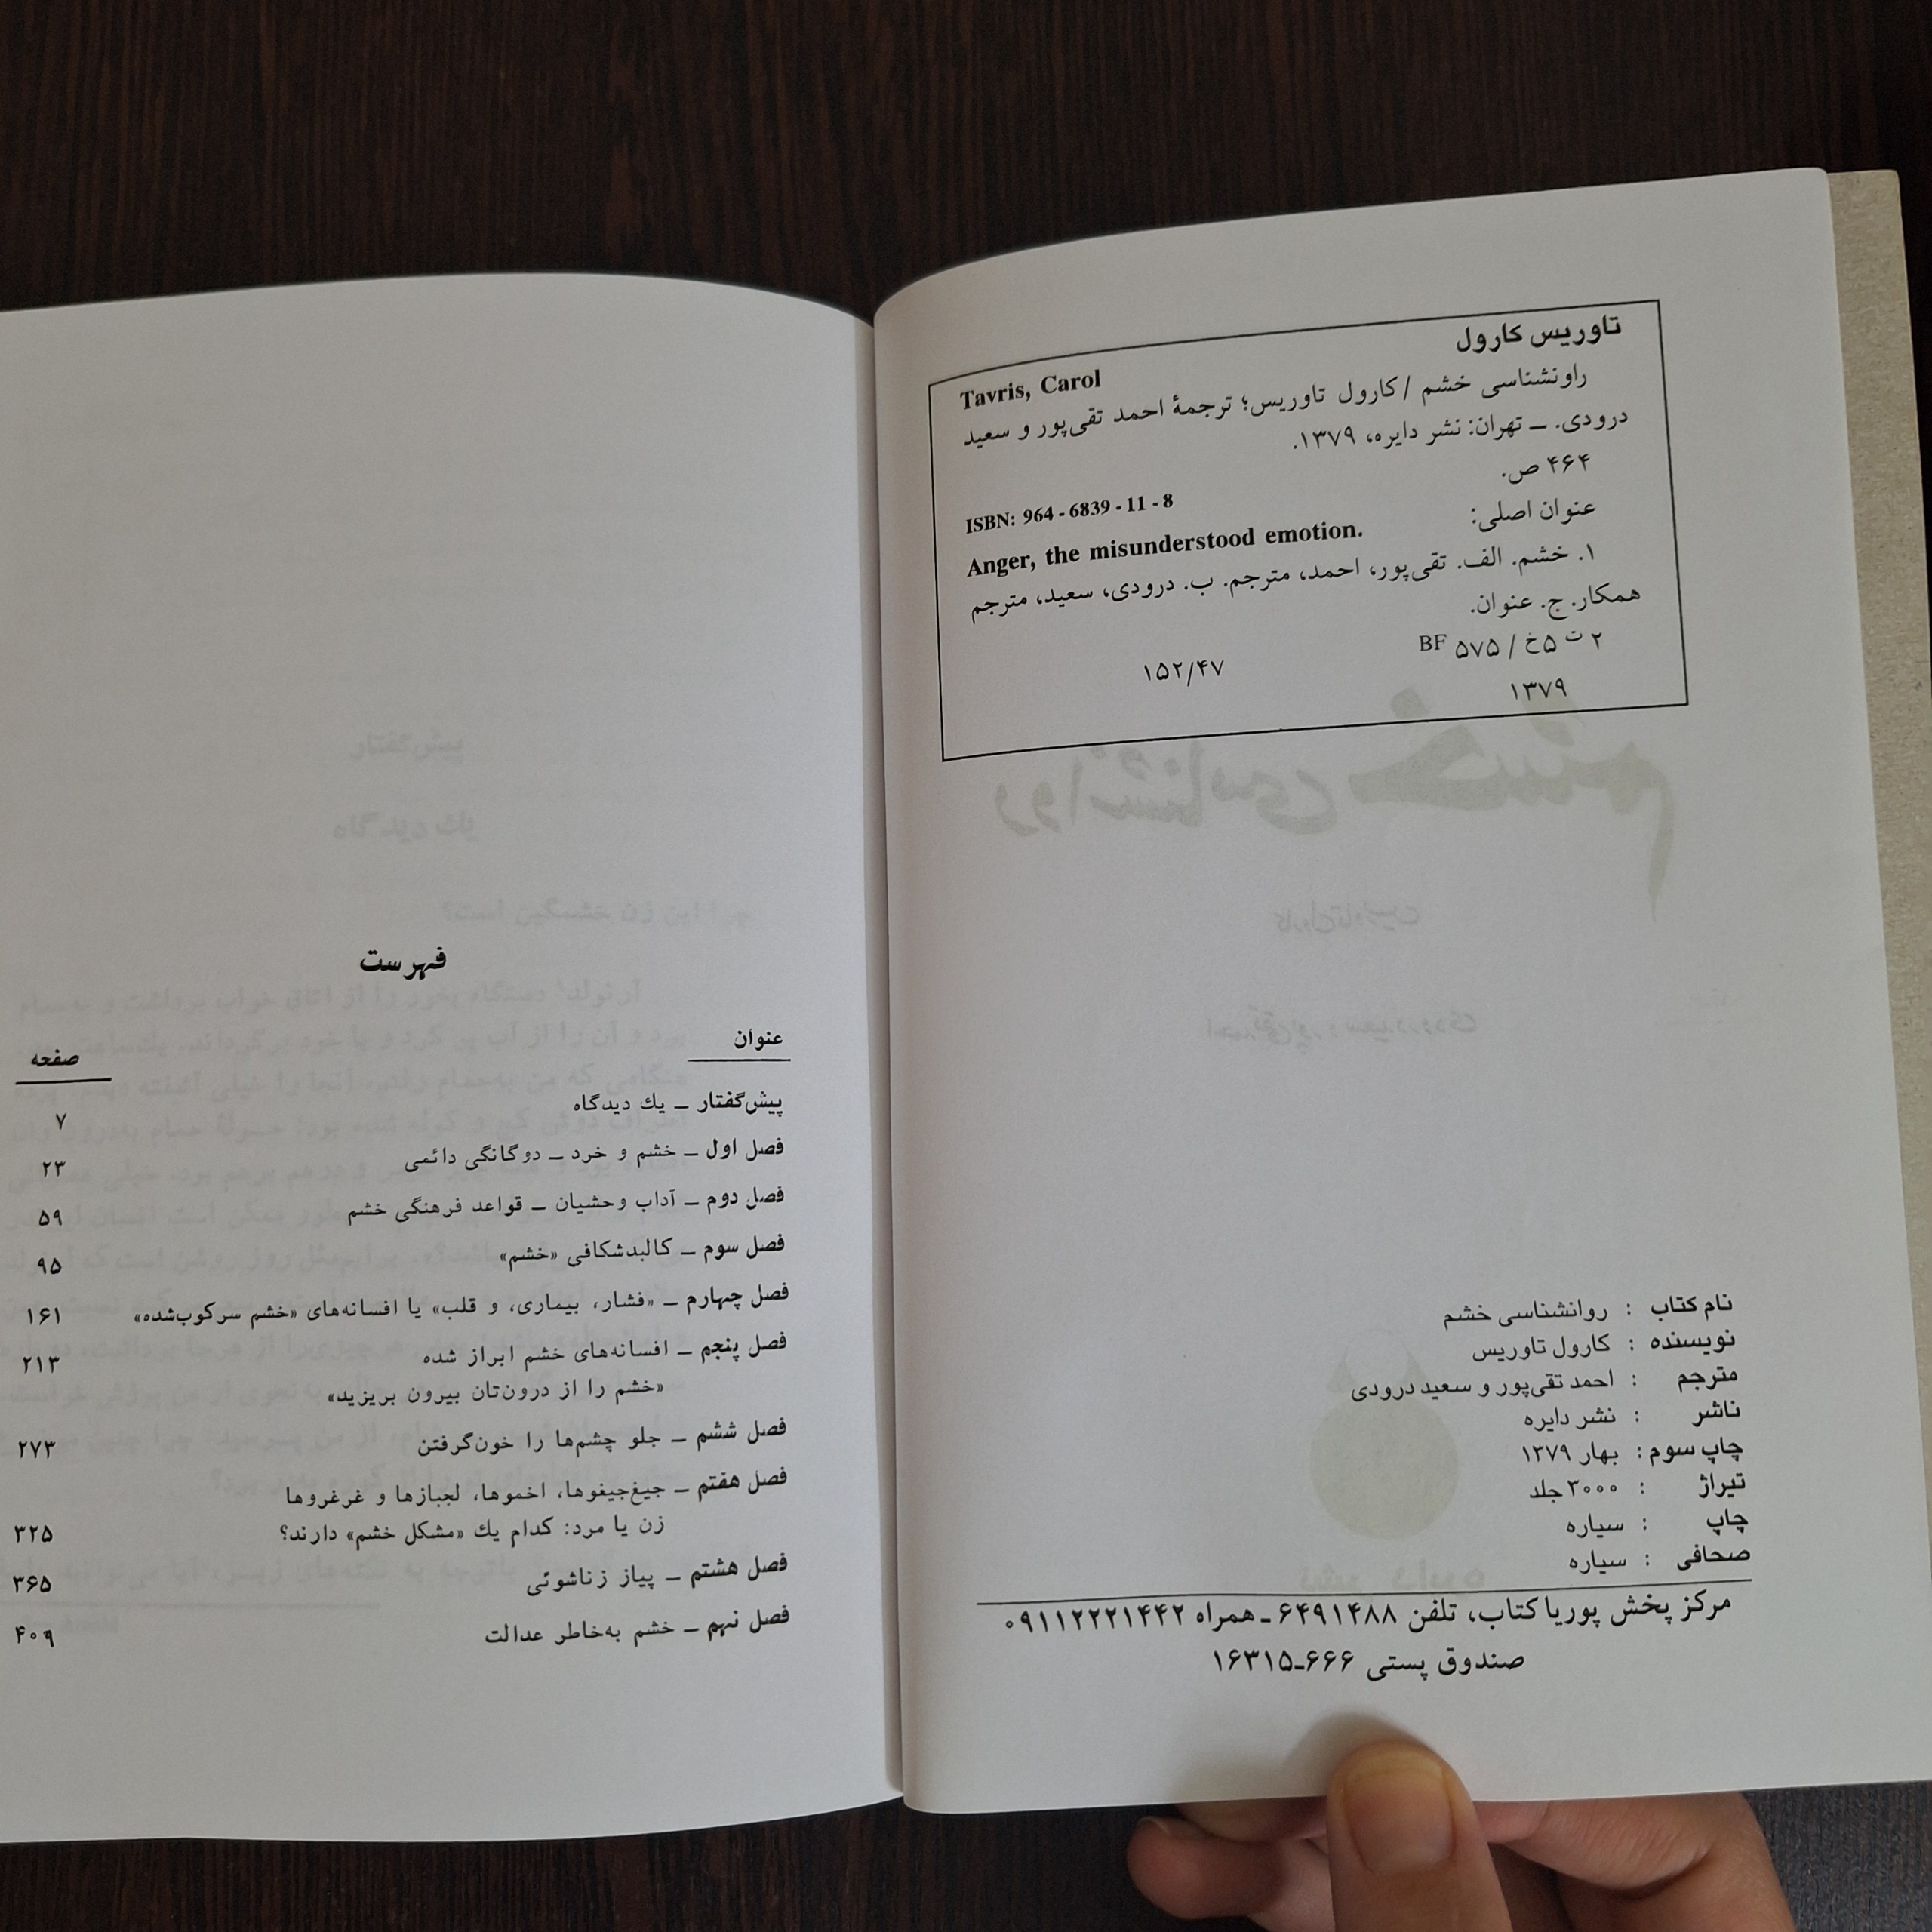 تاوریس کارول
Tavris, Carol
راونشناسی خشم / کارول تاوریس؛ ترجمهٔ احمد تقی‌پور و سعید
درودی. ــ تهران: نشر دایره، ۱۳۷۹.
۴۶۴ ص.
ISBN: 964 - 6839 - 11 - 8
عنوان اصلی:
Anger, the misunderstood emotion.
۱. خشم. الف. تقی‌پور، احمد، مترجم. ب. درودی، سعید، مترجم
همکار. ج. عنوان.
۲ ت ۵خ / ۵۷۵ BF
۱۵۲/۴۷
۱۳۷۹
نام کتاب : روانشناسی خشم
نویسنده : کارول تاوریس
مترجم : احمد تقی‌پور و سعید درودی
ناشر : نشر دایره
چاپ سوم : بهار ۱۳۷۹
تیراژ : ۳۰۰۰ جلد
چاپ : سیاره
صحافی : سیاره
مرکز پخش پوریا کتاب، تلفن ۶۴۹۱۴۸۸ ـ همراه ۰۹۱۱۲۲۲۱۴۴۲
صندوق پستی ۶۶۶ـ۱۶۳۱۵
فهرست
عنوان صفحه
پیش‌گفتار ــ یك دیدگاه ۷
فصل اول ــ خشم و خرد ــ دوگانگی دائمی ۲۳
فصل دوم ــ آداب وحشیان ــ قواعد فرهنگی خشم ۵۹
فصل سوم ــ کالبدشکافی «خشم» ۹۵
فصل چهارم ــ «فشار، بیماری، و قلب» یا افسانه‌های «خشم سرکوب‌شده» ۱۶۱
فصل پنجم ــ افسانه‌های خشم ابراز شده ۲۱۳
«خشم را از درون‌تان بیرون بریزید»
فصل ششم ــ جلو چشم‌ها را خون‌گرفتن ۲۷۳
فصل هفتم ــ جیغ‌جیغوها، اخموها، لجبازها و غرغروها
زن یا مرد: کدام یك «مشکل خشم» دارند؟ ۳۲۵
فصل هشتم ــ پیاز زناشوئی ۳۶۵
فصل نهم ــ خشم به‌خاطر عدالت ۴۰۹